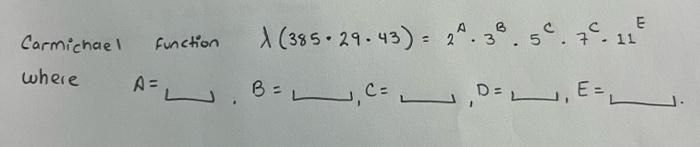 Carmichael function λ(385·29·43) = 2^A · 3^B · 5^C · 7^C · 11^E
where A = ___, B = ___, C = ___, D = ___, E = ___.